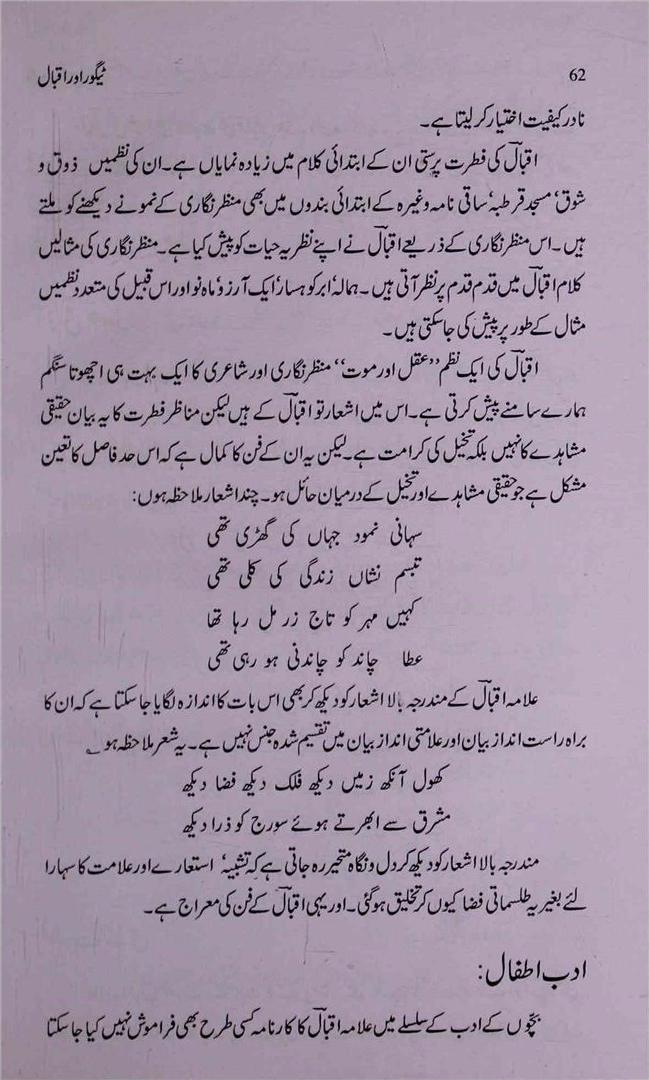 62
ٹیگور اور اقبال
نادر کیفیت اختیار کر لیتا ہے۔
اقبالؔ کی فطرت پرستی ان کے ابتدائی کلام میں زیادہ نمایاں ہے۔ ان کی نظمیں ذوق و
شوق‘ مسجد قرطبہ‘ ساقی نامہ وغیرہ کے ابتدائی بندوں میں بھی منظر نگاری کے نمونے دیکھنے کو ملتے
ہیں۔ اس منظر نگاری کے ذریعے اقبالؔ نے اپنے نظریہ حیات کو پیش کیا ہے۔ منظر نگاری کی مثالیں
کلام اقبالؔ میں قدم قدم پر نظر آتی ہیں۔ ہمالہ‘ ابر کوہسار‘ ایک آرزو‘ ماہ نو اور اس قبیل کی متعدد نظمیں
مثال کے طور پر پیش کی جاسکتی ہیں۔
اقبالؔ کی ایک نظم ’’عقل اور موت‘‘ منظر نگاری اور شاعری کا ایک بہت ہی اچھوتا سنگم
ہمارے سامنے پیش کرتی ہے۔ اس میں اشعار تو اقبالؔ کے ہیں لیکن مناظر فطرت کا یہ بیان حقیقی
مشاہدے کا نہیں بلکہ تخیل کی کرامت ہے۔ لیکن یہ ان کے فن کا کمال ہے کہ اس حد فاصل کا تعین
مشکل ہے جو حقیقی مشاہدے اور تخیل کے درمیان حائل ہو۔ چند اشعار ملاحظہ ہوں:
سہانی نمود جہاں کی گھڑی تھی
تبسم نشاں زندگی کی کلی تھی
کہیں مہر کو تاج زر مل رہا تھا
عطا چاند کو چاندنی ہو رہی تھی
علامہ اقبالؔ کے مندرجہ بالا اشعار کو دیکھ کر بھی اس بات کا اندازہ لگایا جاسکتا ہے کہ ان کا
براہ راست انداز بیان اور علامتی انداز بیان میں تقسیم شدہ جنس نہیں ہے۔ یہ شعر ملاحظہ ہو ؂
کھول آنکھ زمیں دیکھ فلک دیکھ فضا دیکھ
مشرق سے ابھرتے ہوئے سورج کو ذرا دیکھ
مندرجہ بالا اشعار کو دیکھ کر دل و نگاہ متحیر رہ جاتی ہے کہ تشبیہ‘ استعارے اور علامت کا سہارا
لئے بغیر یہ طلسماتی فضا کیوں کر تخلیق ہوگئی۔ اور یہی اقبالؔ کے فن کی معراج ہے۔
ادب اطفال:
بچوں کے ادب کے سلسلے میں علامہ اقبالؔ کا کارنامہ کسی طرح بھی فراموش نہیں کیا جاسکتا